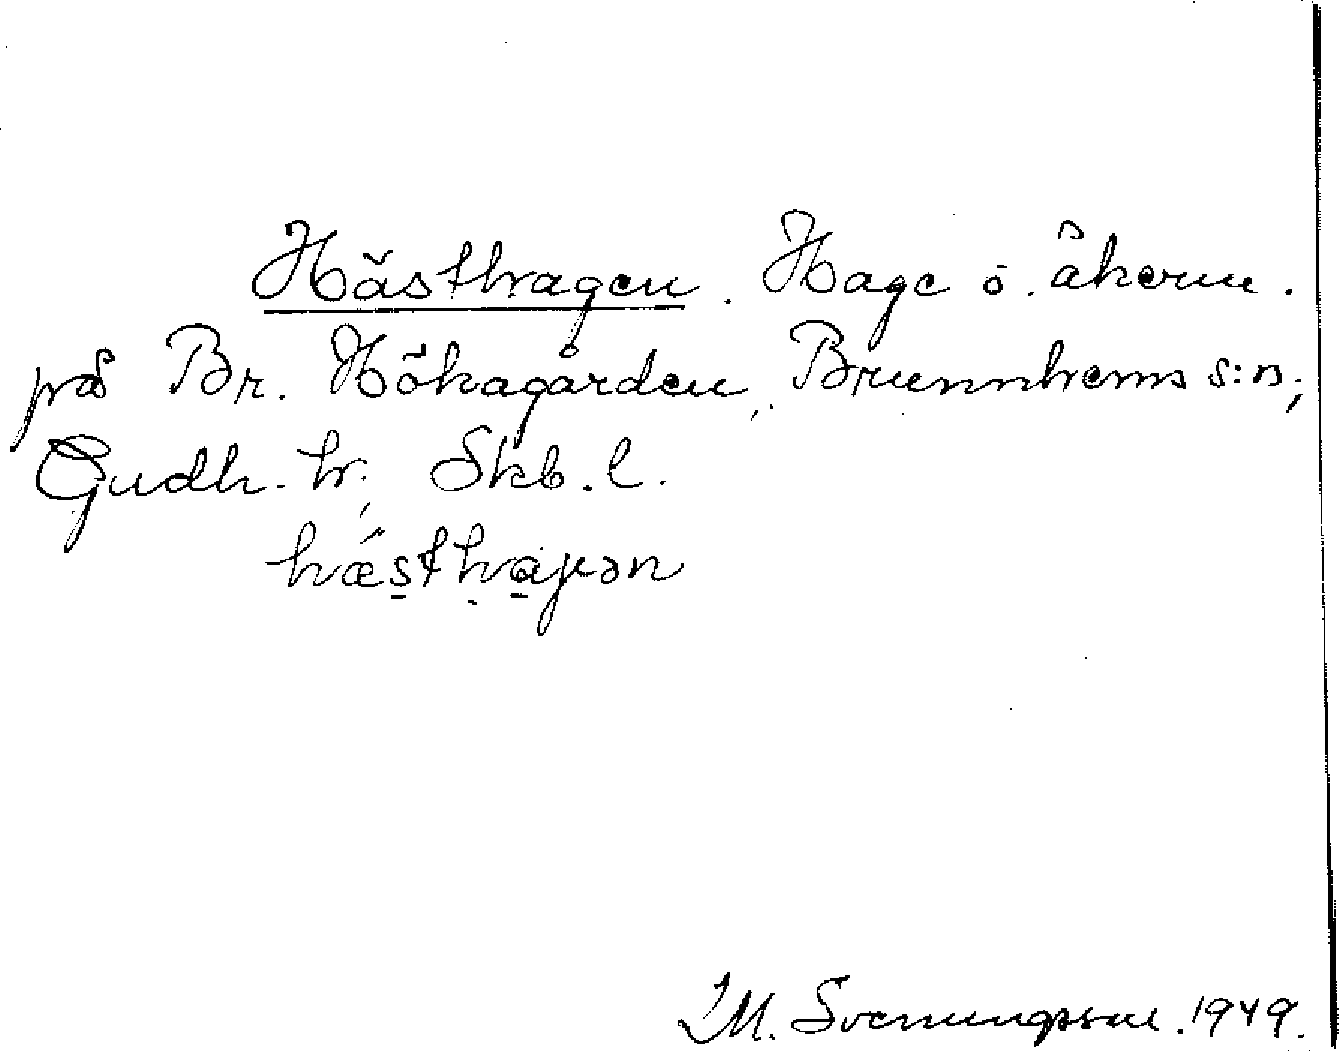 Hästhagen. Hage ö. åkern.
på Br. Hökagården, Brunnhems s:n,
Gudh. hr, Skb. l.
hæ´sthaɡən
M. Svenungsson. 1949.